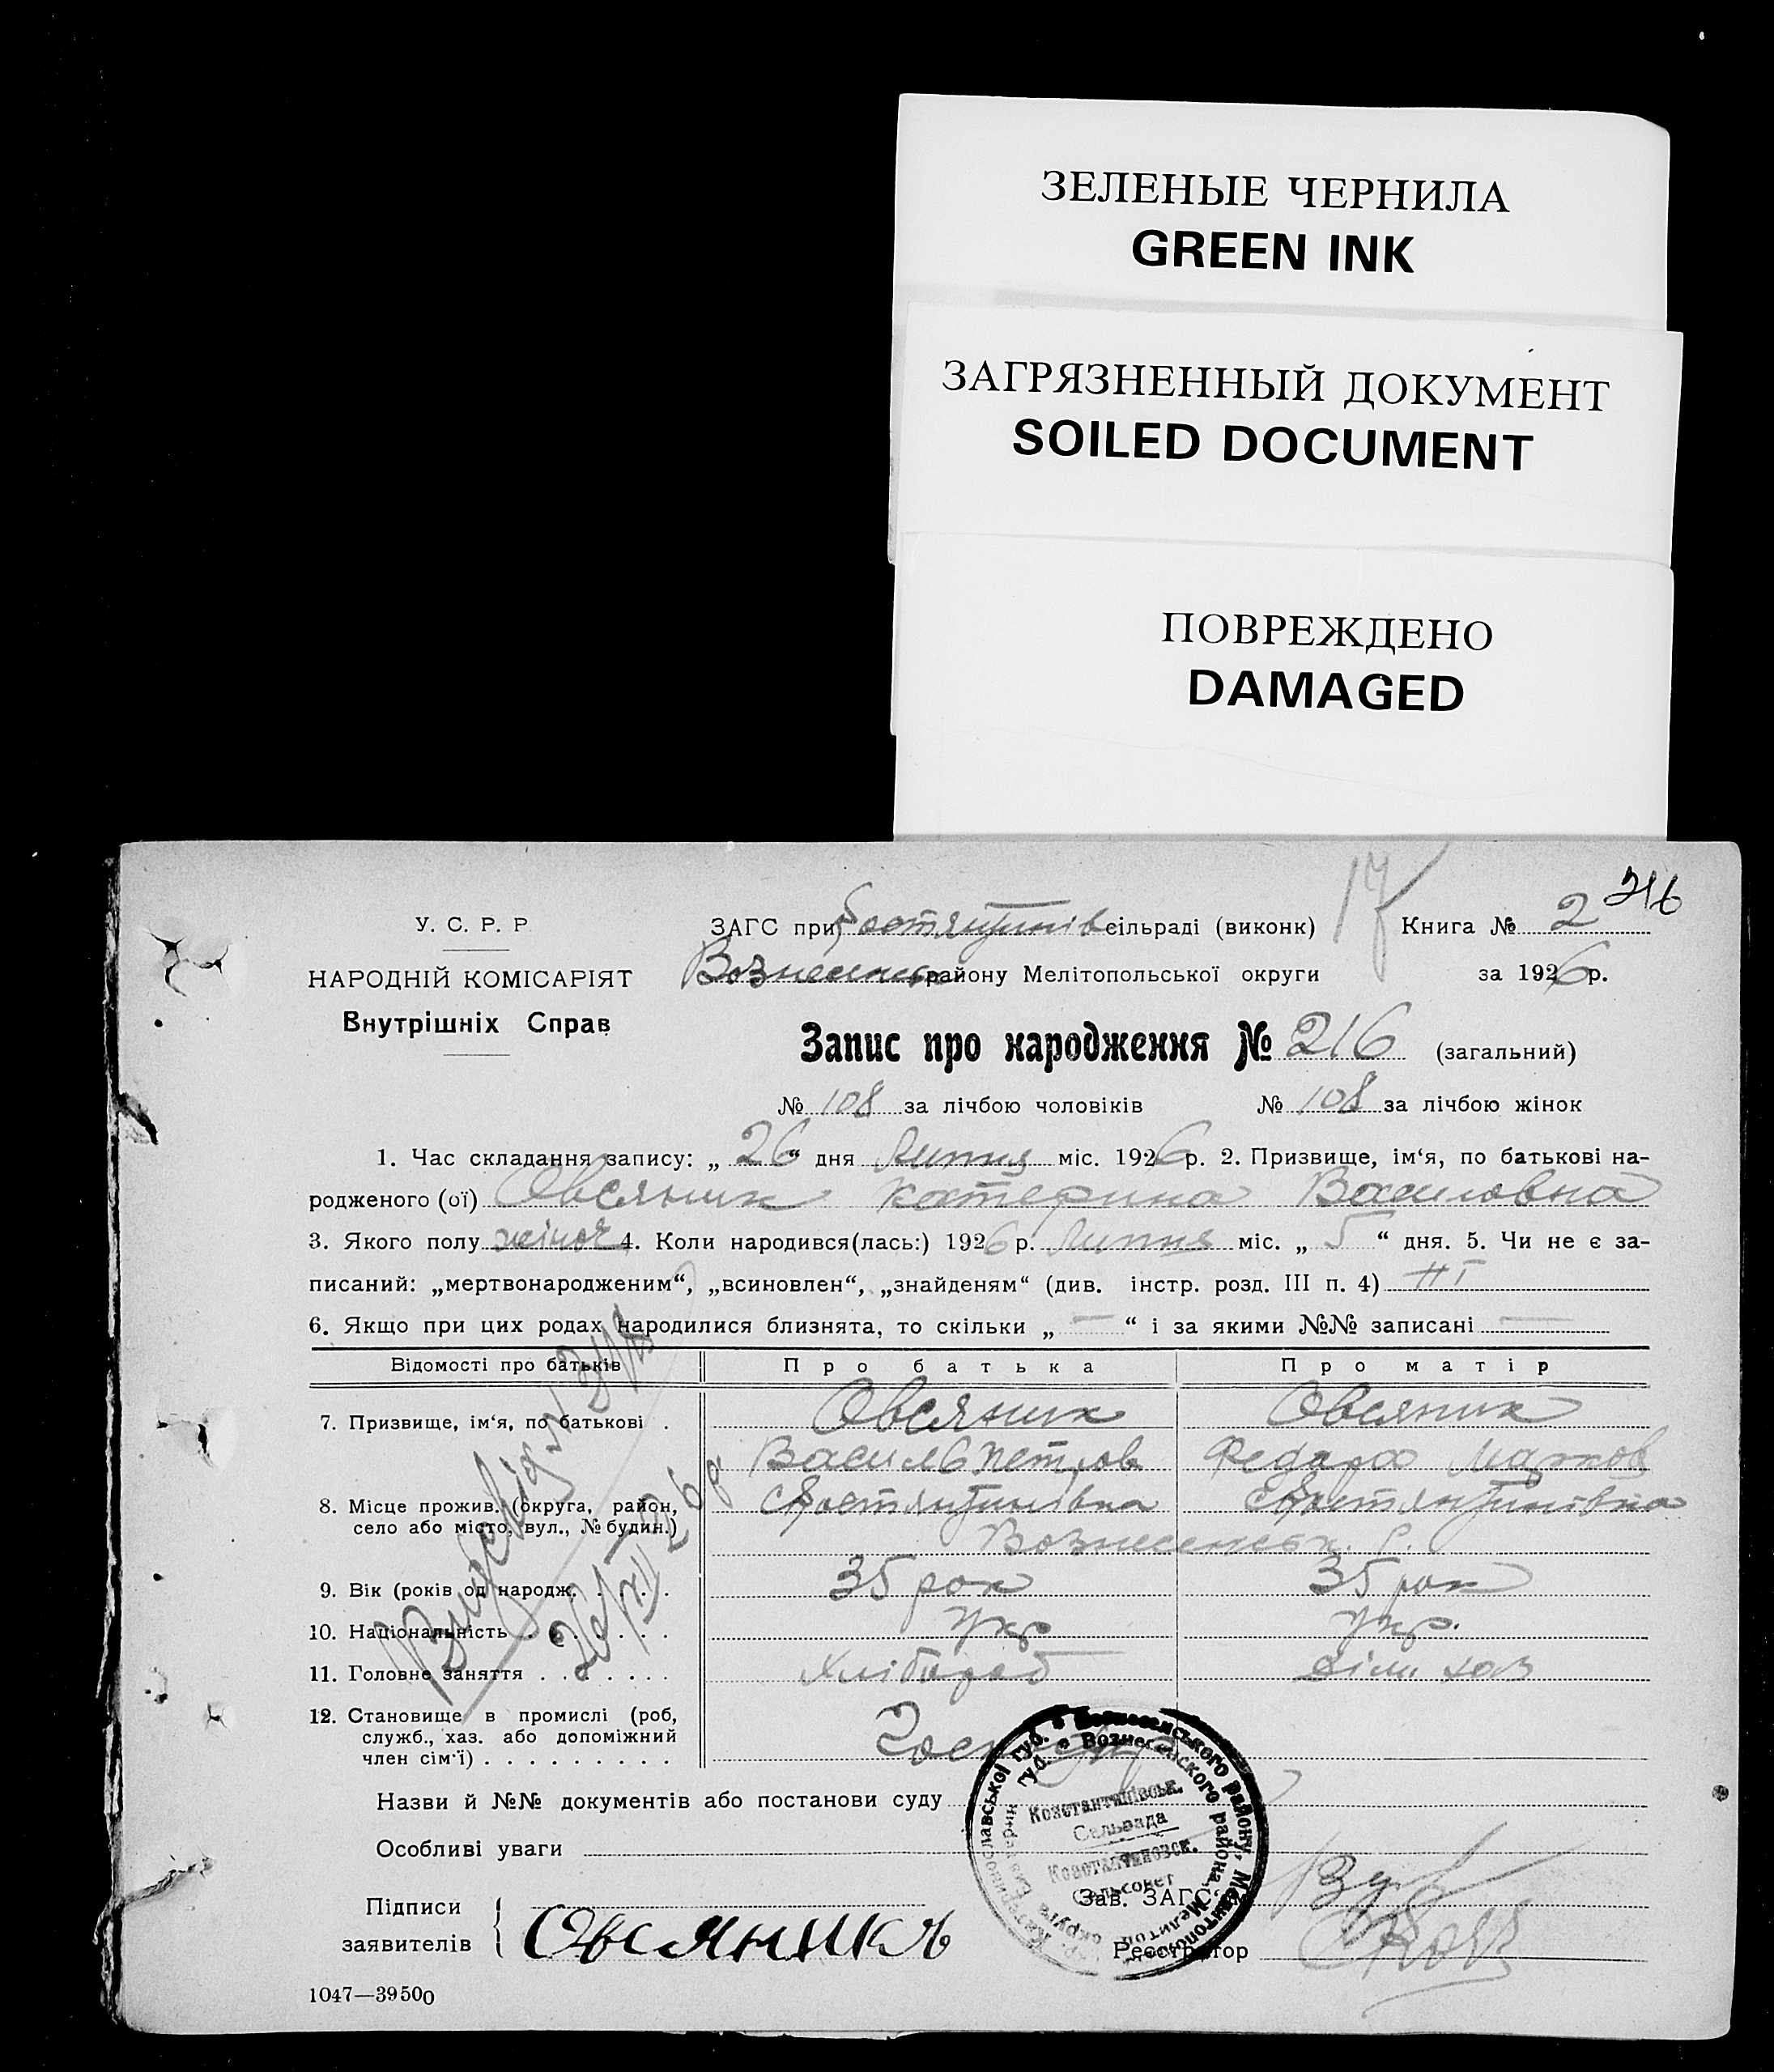 ЗЕЛЕНЫЕ ЧЕРНИЛА
GREEN INK
ЗАГРЯЗНЕННЫЙ ДОКУМЕНТ
SOILED DOCUMENT
ПОВРЕЖДЕНО
DAMAGED
17
216
У. С. Р. Р
НАРОДНІЙ КОМІСАРІЯТ
Внутрішніх Справ
ЗАГС при сільраді (виконк) Книга № 2
Вознесенськ району Мелітопольської округи за 1926 р.
Запис про народження № 216 (загальний)
№ 108 за лічбою чоловіків № 108 за лічбою жінок
1. Час складання запису: „ 26 “ дня Липня міс. 1926 р. 2. Призвище, ім‘я, по батькові на-
родженого (ої) Овсяник Катерина Василовна
3. Якого полу жіноч 4. Коли народився(лась:) 1926 р. Липня міс. „ 5 “ дня. 5. Чи не є за-
писаний: „мертвонародженим“, „всиновлен“, „знайденям“ (див. інстр. розд. III п. 4) ні
6. Якщо при цих родах народилися близнята, то скільки „ — “ і за якими №№ записані —
Відомості про батьків Про батька Про матір
7. Призвище, ім‘я, по батькові . Овсяник Овсяник
Василь Петров Федора Марков
8. Місце прожив. (округа, район,
село або місто, вул., № будин.)
Вознесенськ. р.
9. Вік (років од народж. . . . . 35 рок 35 рок
10. Національність . . . . . . Укр Укр.
11. Головне заняття . . . . . . Хлібороб
12. Становище в промислі (роб,
служб., хаз. або допоміжний
член сім‘ї) . . . . . . . . .
Назви й №№ документів або постанови суду
Особливі уваги
Підписи
заявителів
Овсяникъ
Константинівськ.
Сельрада
Константиновск.
Сельсовет
Зав. ЗАГС‘ом
Реєстратор
1047—39500